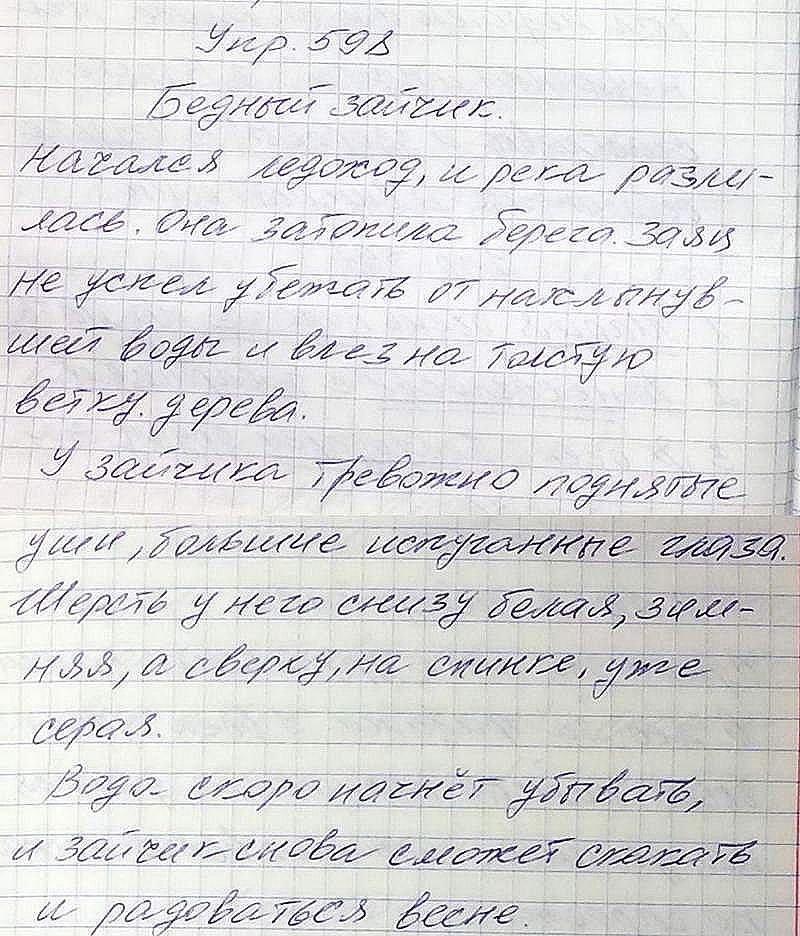 Упр. 598
Бедный зайчик.
Начался ледоход, и река разли-
лась. Она затопила берега. Заяц
не успел убежать от нахлынув-
шей воды и влез на толстую
ветку. дерева.
У зайчика тревожно поднятые
уши, большие испуганные глаза.
Шерсть у него снизу белая, зим-
няя, а сверху, на спинке, уже
серая.
Вода скоро начнёт убывать,
и зайчик снова сможет скакать
и радоваться весне.